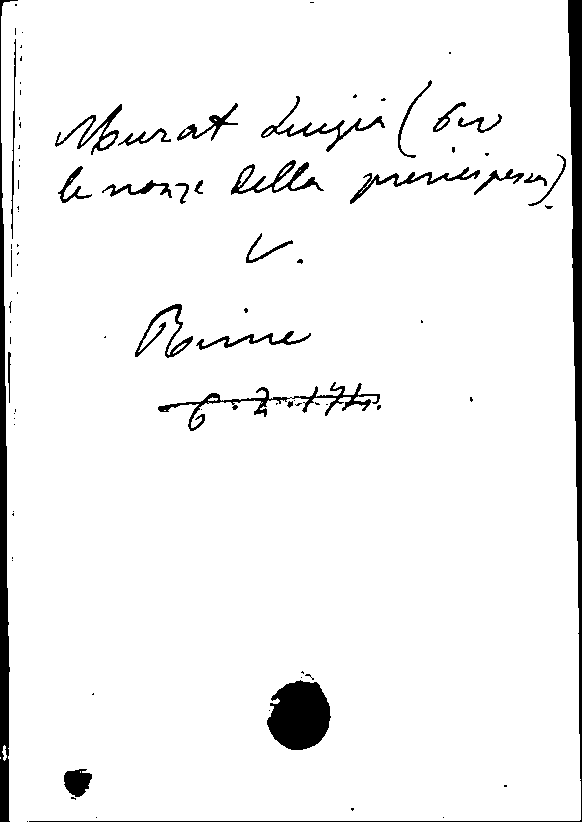 Murat Luigia (Per
le nozze della principessa).
V.
Rime
6.2.174.